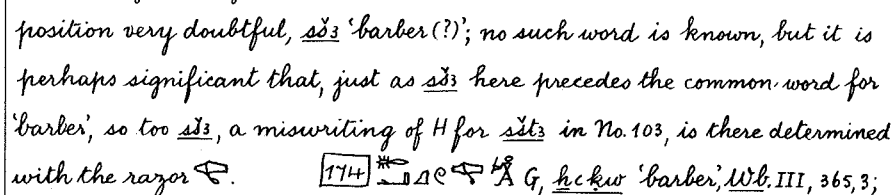 position very doubtful, sš3 'barber (?)'; no such word is known, but it is
perhaps significant that, just as sš3 here precedes the common word for
'barber', so too sš3, a miswriting of H for sšt3 in No. 103, is there determined
with the razor 𓌫. [174] G, ḫꜥḳw 'barber', Wb, III, 365, 3;